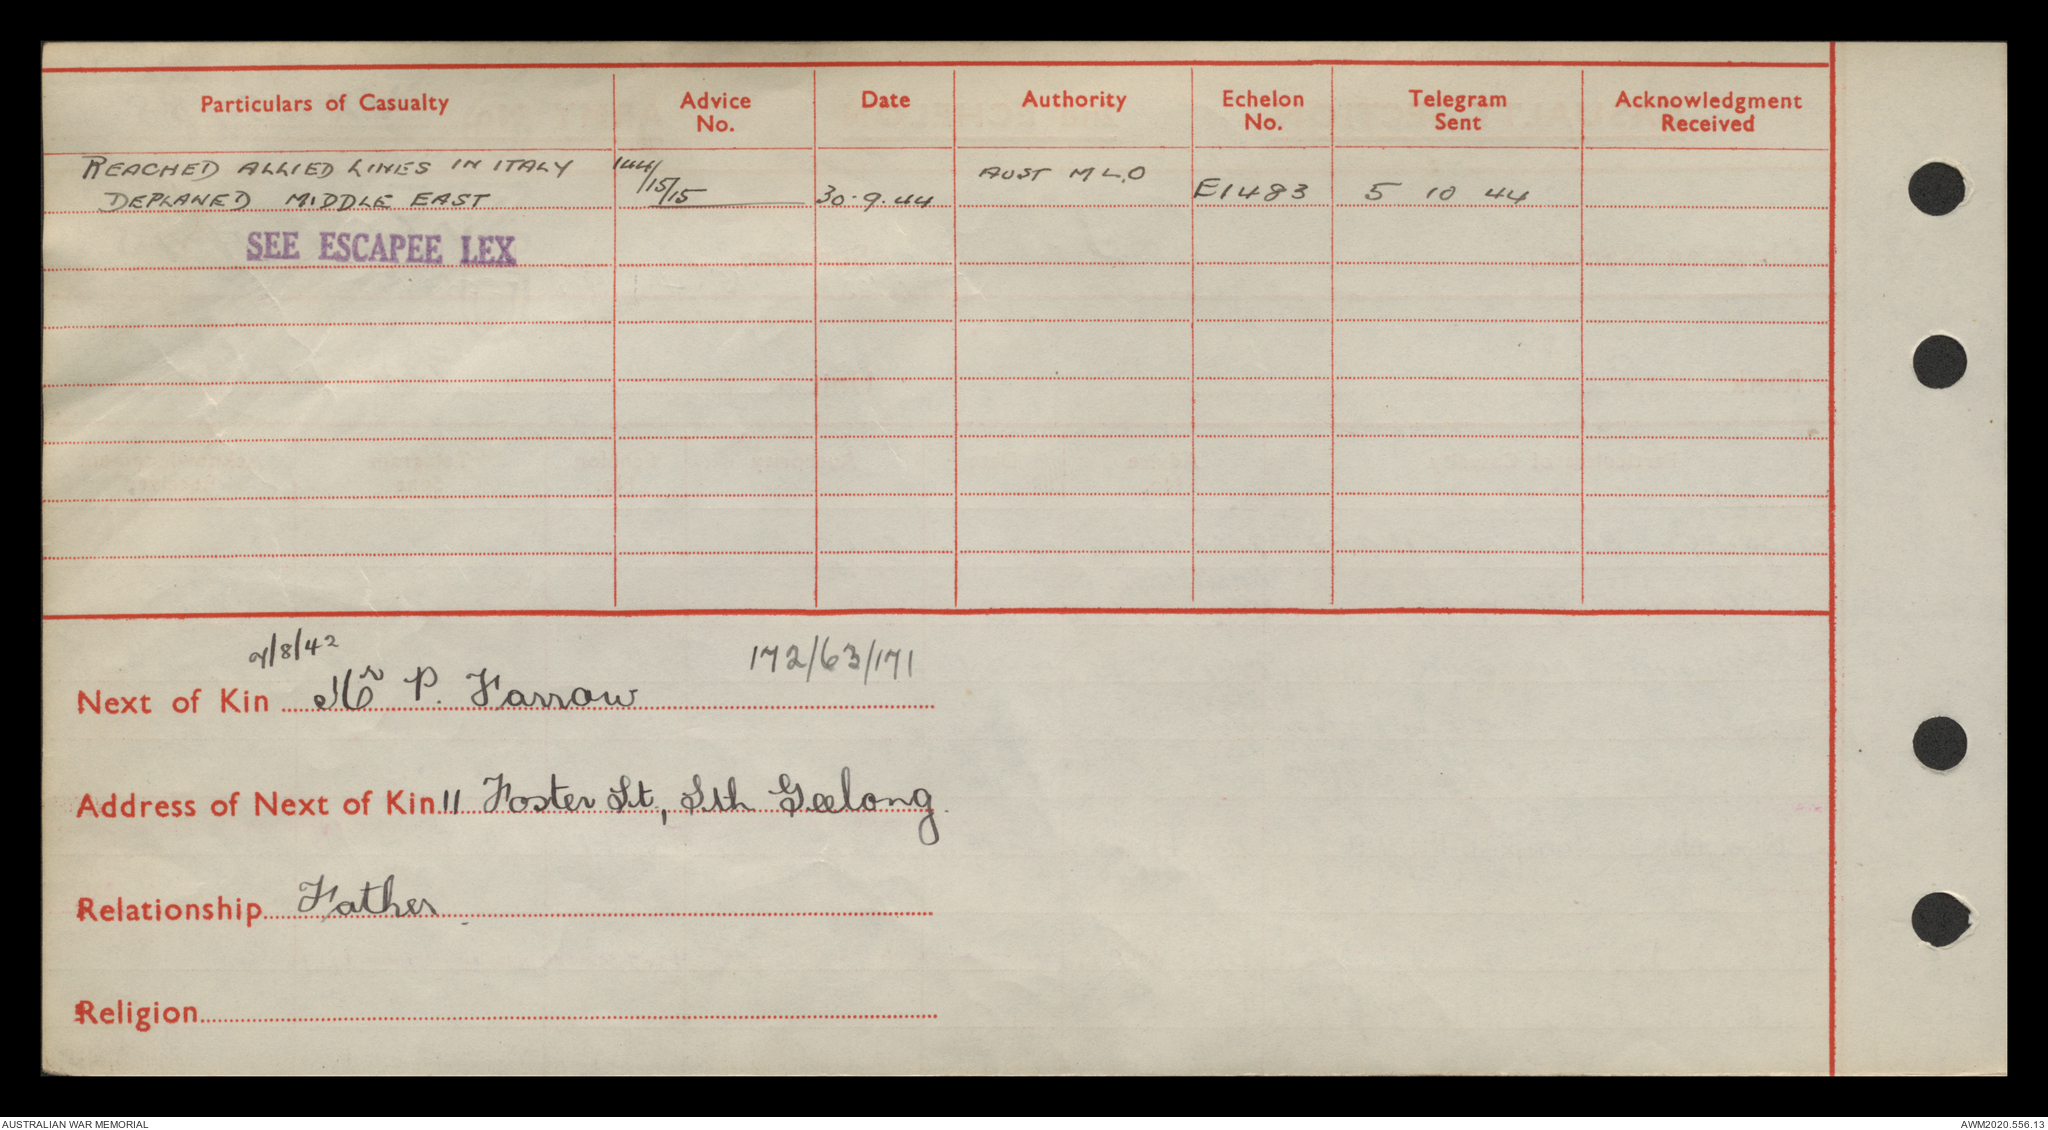 Particulars of Casualty Advice No. Date Authority Echelon No. Telegram Sent Acknowledgment Received
REACHED ALLIED LINES IN ITALY 144/15/15 AUST M L.O
DEPLANED MIDDLE EAST 30.9.44 E1483 5 10 44
SEE ESCAPEE LEX
7/8/42 172/63/171
Next of Kin Mr P. Farrow
Address of Next of Kin 11 Foster St, Sth Geelong.
Relationship Father
Religion
AUSTRALIAN WAR MEMORIAL AWM2020.556.13